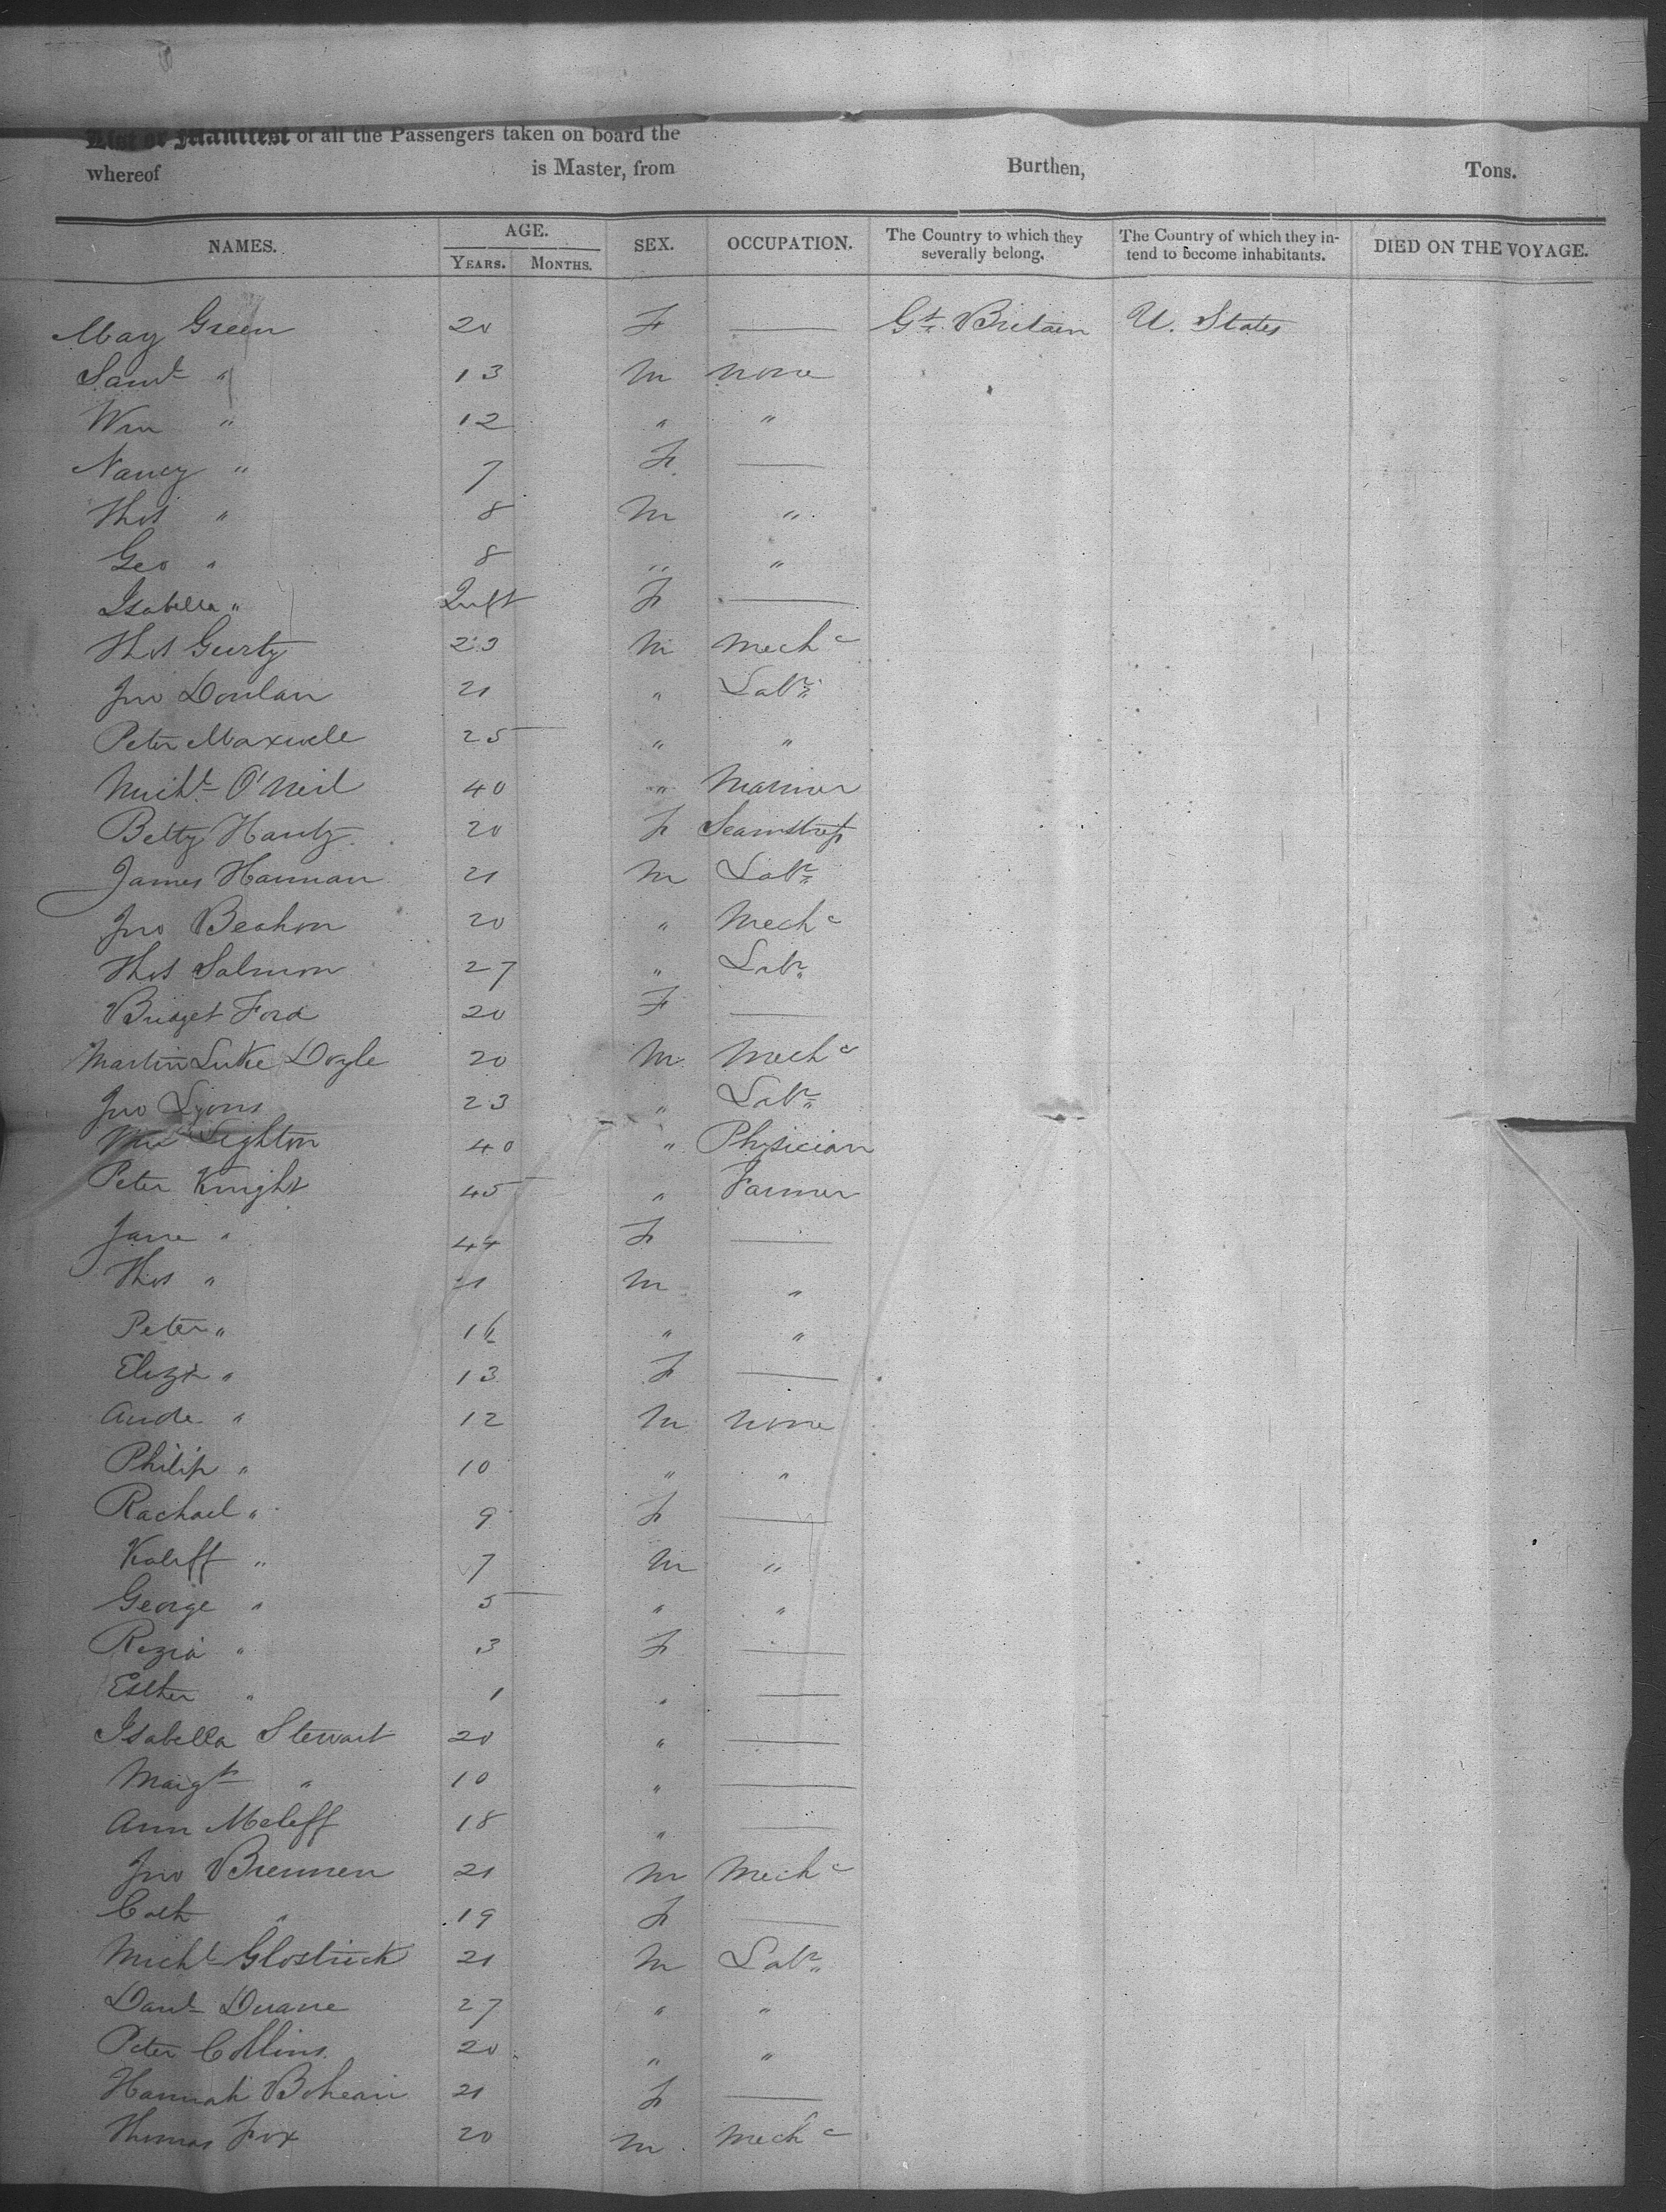 List or Manifest of all the Passengers taken on board the
whereof is Master, from Burthen, Tons.
NAMES. AGE. SEX. OCCUPATION. The Country to which they severally belong. The Country of which they intend to become inhabitants. DIED ON THE VOYAGE.
YEARS. MONTHS.
May Green 20 F — Gt. Britain U. States
Saml " 13 M none
Wm " 12 " "
Nancy " 7 F —
Thos " 8 M "
Geo " 8 " "
Isabella " Inft F —
Thos Gurty 23 M Mechc
Jno Donlan 21 " Labr
Peter Maxwell 25 " "
Michl O'Neil 40 " Mariner
Betty Hanly 20 F Seamstress
James Hannan 21 M Labr
Jno Beahon 20 " Mechc
Thos Salmon 27 " Labr
Bridget Ford 20 F —
Martin Luke Doyle 20 M Mechc
Jno Lyons 23 " Labr
Wm Leighton 40 " Physician
Peter Knight 45 " Farmer
Jane " 44 F —
Thos " 21 M "
Peter " 16 " "
Eliza " 13 F —
Andw " 12 M none
Philip " 10 " "
Rachael " 9 F —
" 7 M "
George " 5 " "
" 3 F —
Esther " 1 " —
Isabella Stewart 20 " —
Margt " 10 " —
Ann 18 " —
Jno Brennen 21 M Mechc
Cath " 19 F —
Michl 21 M Labr
Danl Duane 27 " "
Peter Collins 20 " "
Hannah 21 F —
Thomas Fox 20 M Mechc